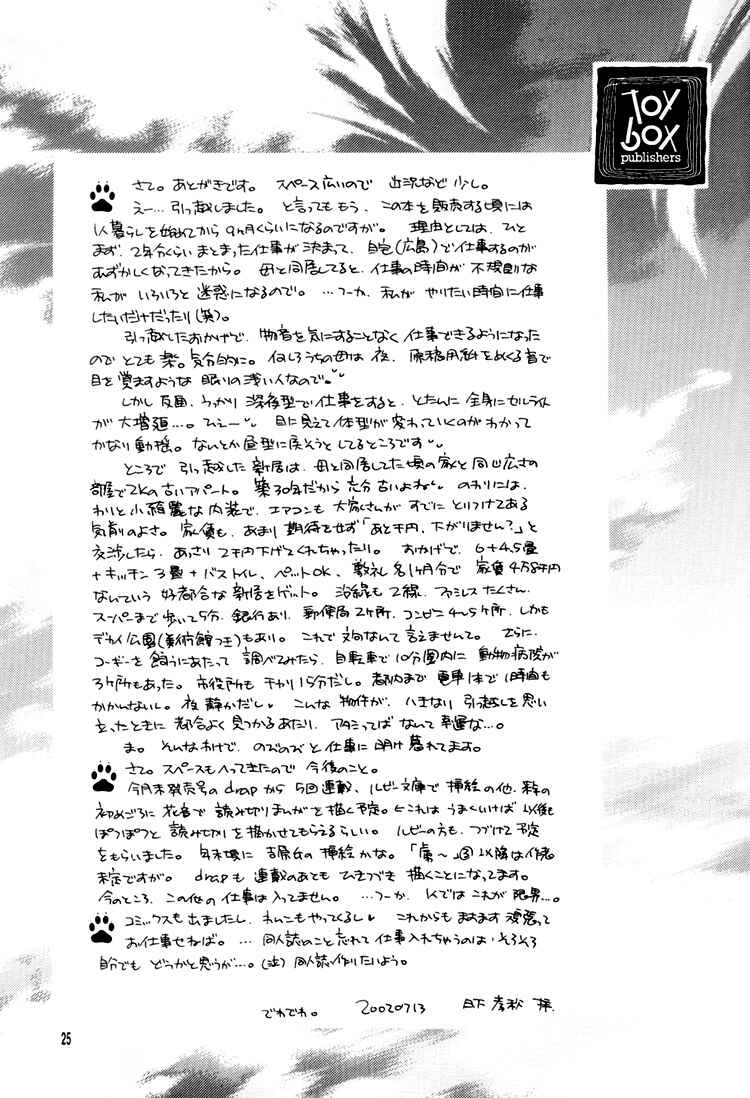 TOY
box
publishers
さて。あとがきです。スペース広いので 近況など少し。
えー…引っ越しました。と言ってももう、この本を販売する頃には
1人暮らしを始めてから9ヶ月くらいになるのですが。理由としては、ひと
まず、2年分くらいまとまった仕事が決まって、自宅(広島)で仕事するのが
むずかしくなってきたから。母と同居してると、仕事の時間が不規則な
私がいろいろと迷惑になるので。…つーか、私がやりたい時間に仕事
したいだけだったり(笑)。
引っ越したおかげで、物音を気にすることなく仕事できるようになった
のでとても楽。気分的に。何しろうちの母は夜、原稿用紙をめくる音で
目を覚ますような眠りの浅い人なので。
しかし反面、うっかり深夜型で仕事をすると、とたんに全身にセルライト
が大増殖…。ひえー 目に見えて体型が変わっていくのがわかって
かなり動揺。なんとか昼型に戻そうとしてるところです
ところで引っ越した新居は、母と同居してた頃の家と同じ広さの
部屋で2Kの古いアパート。築30年だから充分古いよね のわりには、
わりと小綺麗な内装で、エアコンも大家さんがすでにとりつけてある
気前のよさ。家賃も、あまり期待をせず「あと千円、下がりません?」と
交渉したら、あっさり2千円下げてくれちゃったり。おかげで、6+4.5畳
+キッチン3畳+バストイレ、ペットOK、敷礼各1ヶ月分で家賃4万8千円
なんていう好都合な新居をゲット。沿線も2線、ファミレスたくさん、
スーパーまで歩いて5分、銀行あり、郵便局2ヶ所、コンビニ4〜5ヶ所、しかも
デカイ公園(美術館つき)もあり。これで文句なんて言えませんて。さらに、
コーギーを飼うにあたって調べてみたら、自転車で10分圏内に動物病院が
3ヶ所もあった。市役所もチャリ15分だし。都内まで電車1本で1時間も
かかんないし。夜静かだし こんな物件が、いきなり引越しを思い
立ったときに都合よく見つかるあたり、アタシってばなんて幸運な…。
ま。そんなわけで、のびのびと仕事に明け暮れてます。
さて。スペースもへってきたので今後のこと。
今月末発売号のdrapから5回連載、ルビー文庫で挿絵の他、秋の
初めごろに花音で読み切りまんがを描く予定。←これはうまくいけば以後
ぽつぽつと読み切りを描かせてもらえるらしい。ルビーの方も、つづけて予定
をもらいました。年末頃に吉原氏の挿絵かな。「虜〜」③以降は作化
未定ですが。drapも連載のあともひきつづき描くことになってます。
今のところ、この他の仕事は入ってません。…つーか、私ではこれが限界…。
コミックスも出ましたし、わんこもやってくるし これからもますます頑張って
お仕事せねば。…同人誌のこと忘れて仕事入れちゃうのは、そろそろ
自分でもどうかと思うが…。(泣)同人誌作りたいよう。
でわでわ。 20020713 日下孝秋 拝
25